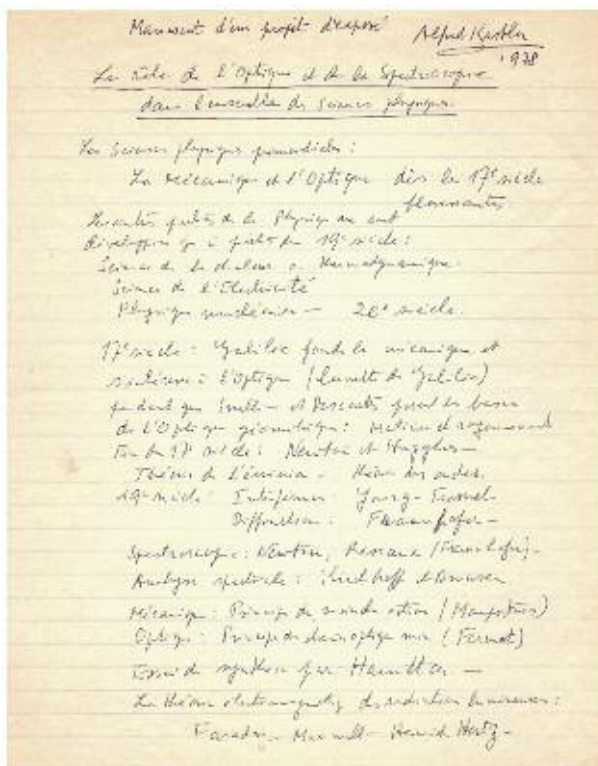 Manuscrit d'un projet d'exposé Alfred Kastler
1978
Le rôle de l'Optique et de la Spectroscopie
dans l'ensemble des sciences physiques
Les sciences physiques primordiales :
La Mécanique et l'Optique dès le 17e siècle
florissantes
Les autres parties de la Physique ne sont
développées qu'à partir du 19e siècle :
Science de la chaleur ou thermodynamique.
Science de l'Electricité
Physique nucléaire — 20e siècle.
17e siècle : Galilée fonde la mécanique et
s'intéresse à l'Optique (lunette de Galilée)
pendant que Snellius et Descartes posent les bases
de l'Optique géométrique :
Fin du 17e siècle : Newton et Huyghens —
Théorie de l'émission — théorie des ondes.
19e siècle : Interférences : Young - Fresnel —
Diffraction : Fraunhofer —
Spectroscopie : Newton, Fraunhofer —
Analyse spectrale : Kirchhoff et Bunsen
Mécanique : Principe de moindre action (Maupertuis)
Optique : Principe du chemin optique min (Fermat)
Essai de synthèse par Hamilton —
La théorie électromagnétiq des radiations lumineuses :
Faraday — Maxwell — Heinrich Hertz —